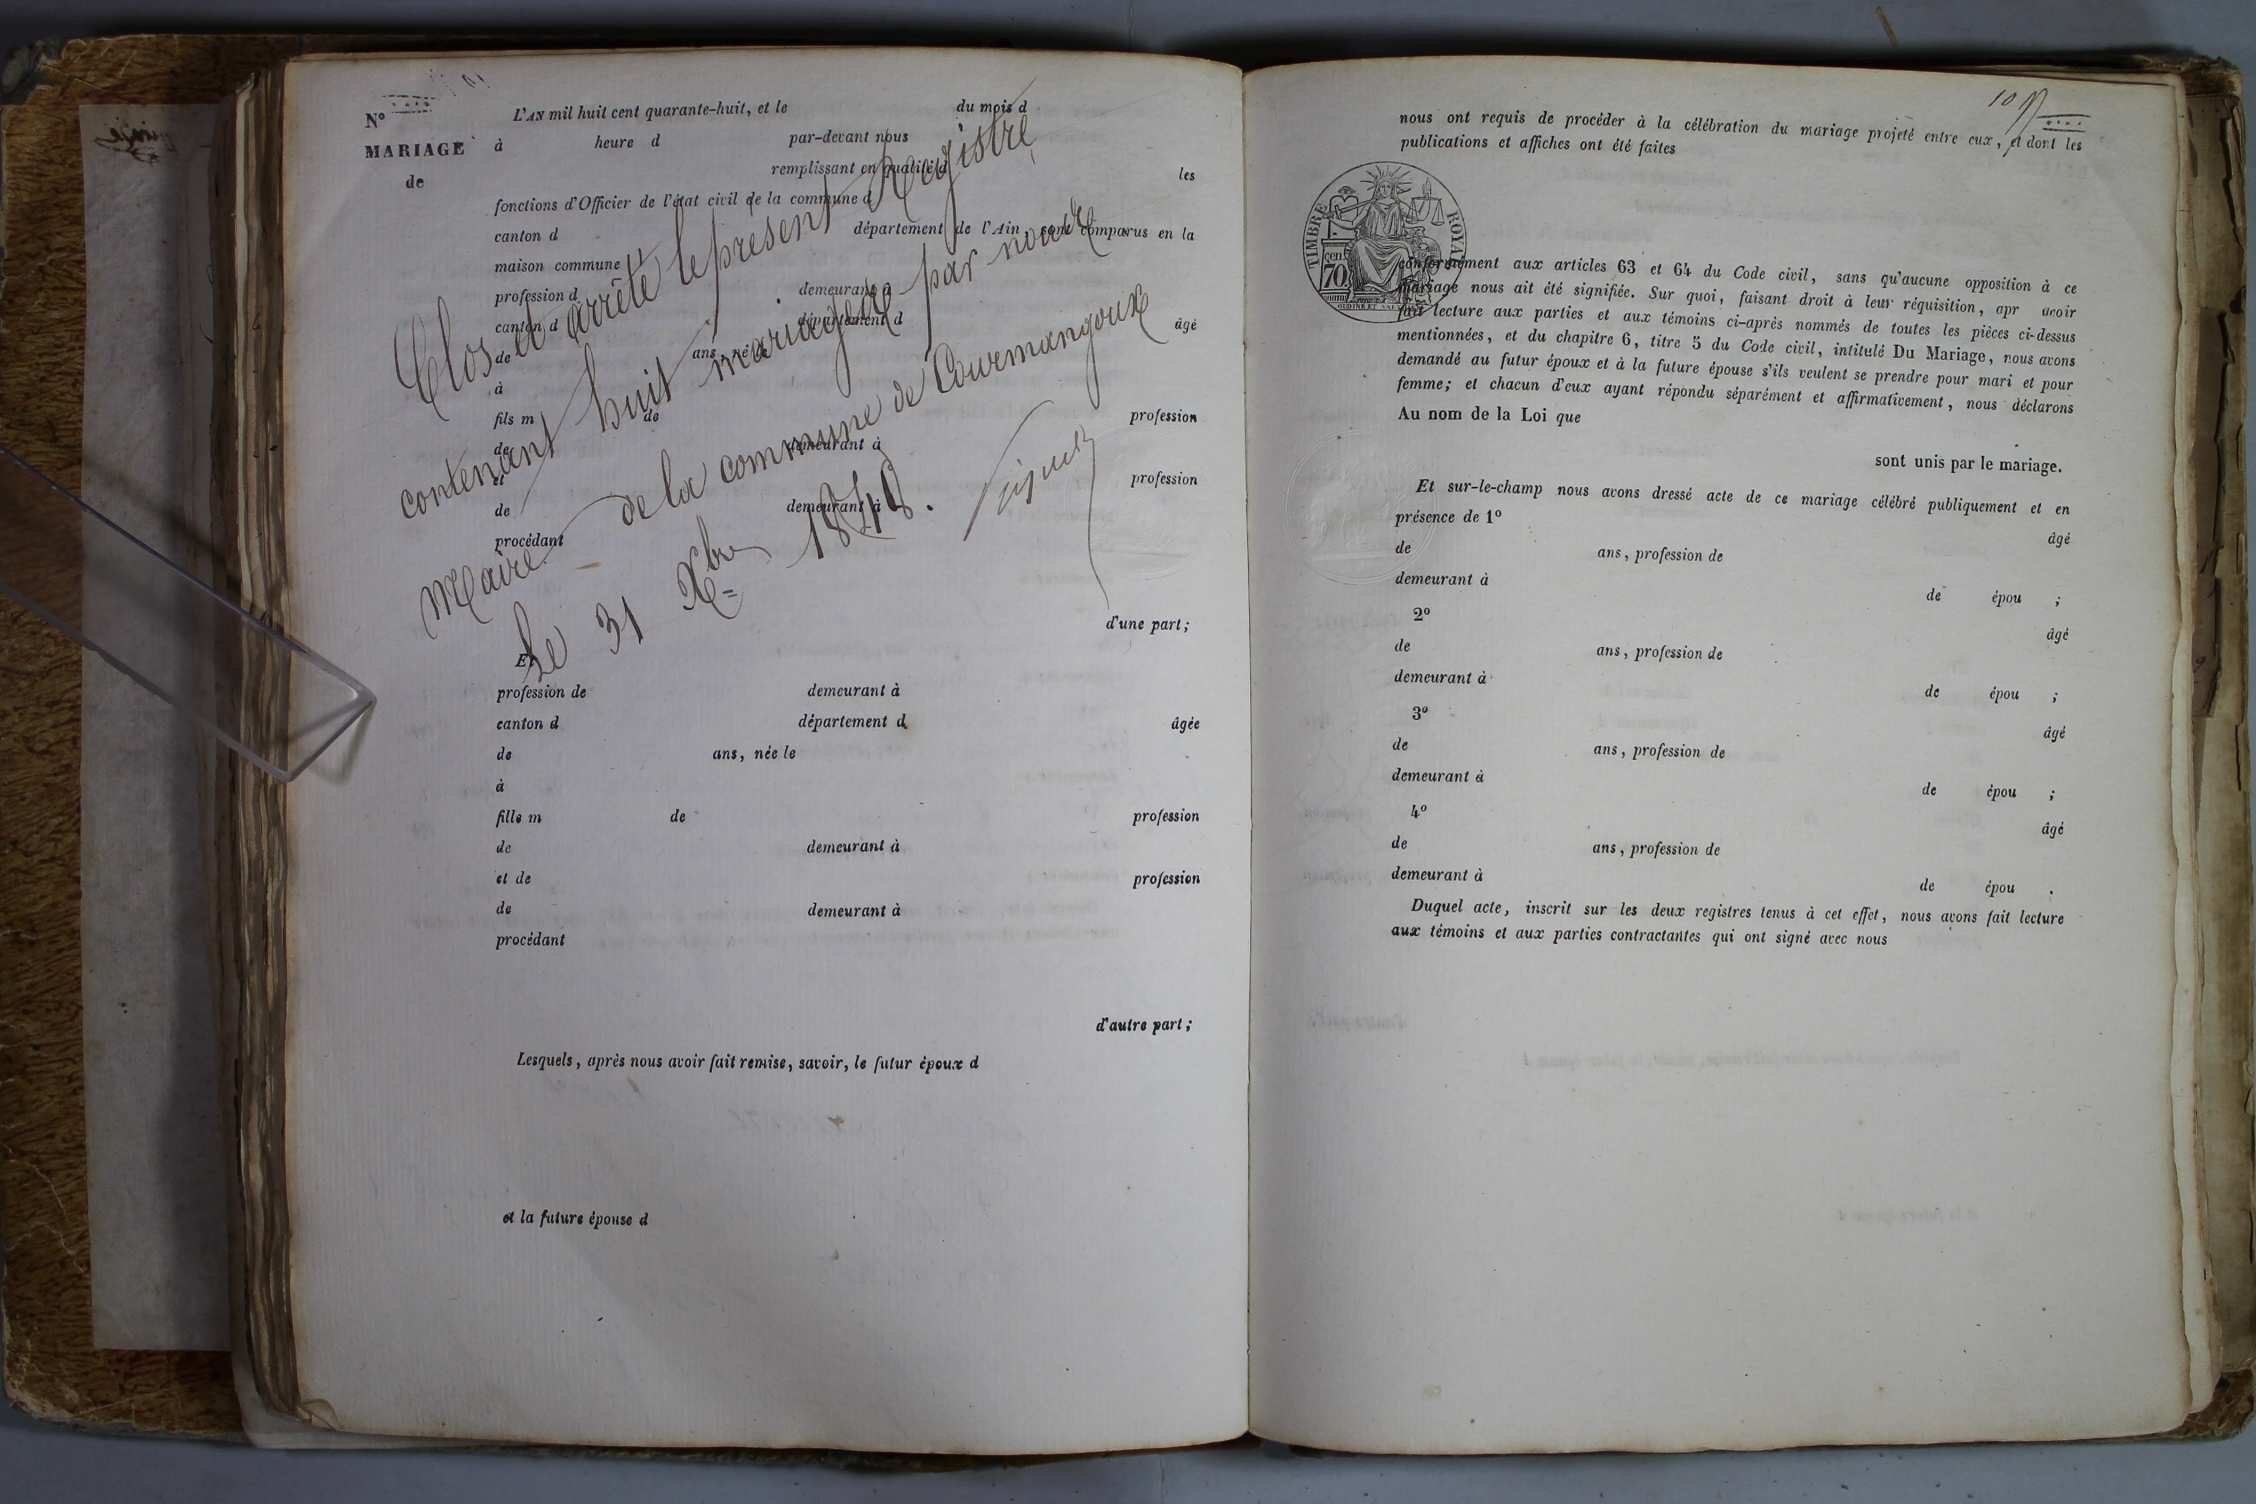 N°
MARIAGE
de
L'AN mil huit cent quarante-huit, et le du mois d
à heure d par-devant nous
remplissant en qualité d les
fonctions d'Officier de l'état civil de la commune d
canton d département de l'Ain, sont comparus en la
maison commune
profession d demeurant à
canton d département d âgé
de ans, né le
à
fils m de profession
de demeurant à
et
de demeurant à profession
procédant
Clos et arrêté le présent Registre
contenant huit mariages par nous
Maire de la commune de Courmangoux
Le 31 Xbre 1848.
d'une part;
Et
profession de demeurant à
canton d département d âgée
de ans, née le
à
fille m de profession
de demeurant à
et de profession
de demeurant à
procédant
d'autre part;
Lesquels, après nous avoir fait remise, savoir, le futur époux d
et la future épouse d
10
nous ont requis de procéder à la célébration du mariage projeté entre eux, et dont les
publications et affiches ont été faites
TIMBRE ROYAL
cen. 70
conformément aux articles 63 et 64 du Code civil, sans qu'aucune opposition à ce
mariage nous ait été signifiée. Sur quoi, faisant droit à leur réquisition, apr avoir
fait lecture aux parties et aux témoins ci-après nommés de toutes les pièces ci-dessus
mentionnées, et du chapitre 6, titre 5 du Code civil, intitulé Du Mariage, nous avons
demandé au futur époux et à la future épouse s'ils veulent se prendre pour mari et pour
femme; et chacun d'eux ayant répondu séparément et affirmativement, nous déclarons
Au nom de la Loi que
sont unis par le mariage.
Et sur-le-champ nous avons dressé acte de ce mariage célébré publiquement et en
présence de 1° âgé
de ans, profession de
demeurant à de épou ;
2° âgé
de ans, profession de
demeurant à de épou ;
3° âgé
de ans, profession de
demeurant à de épou ;
4° âgé
de ans, profession de
demeurant à de épou .
Duquel acte, inscrit sur les deux registres tenus à cet effet, nous avons fait lecture
aux témoins et aux parties contractantes qui ont signé avec nous